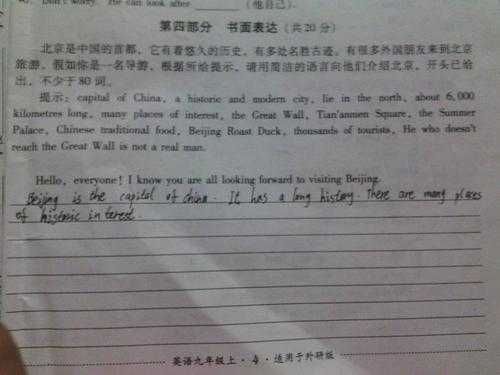 Don't worry. He can look after （他自己）.
第四部分 书面表达（共20分）
北京是中国的首都，它有着悠久的历史，有多处名胜古迹，有很多外国朋友来到北京
旅游。假如你是一名导游，根据所给提示，请用简洁的语言向他们介绍北京，开头已给
出，不少于80词。
提示：capital of China, a historic and modern city, lie in the north, about 6,000
kilometres long, many places of interest, the Great Wall, Tian'anmen Square, the Summer
Palace, Chinese traditional food, Beijing Roast Duck, thousands of tourists, He who doesn't
reach the Great Wall is not a real man.
Hello, everyone! I know you are all looking forward to visiting Beijing.
Beijing is the capital of china. It has a long history. There are many places
of historic interest.
英语九年级上·4·适用于外研版